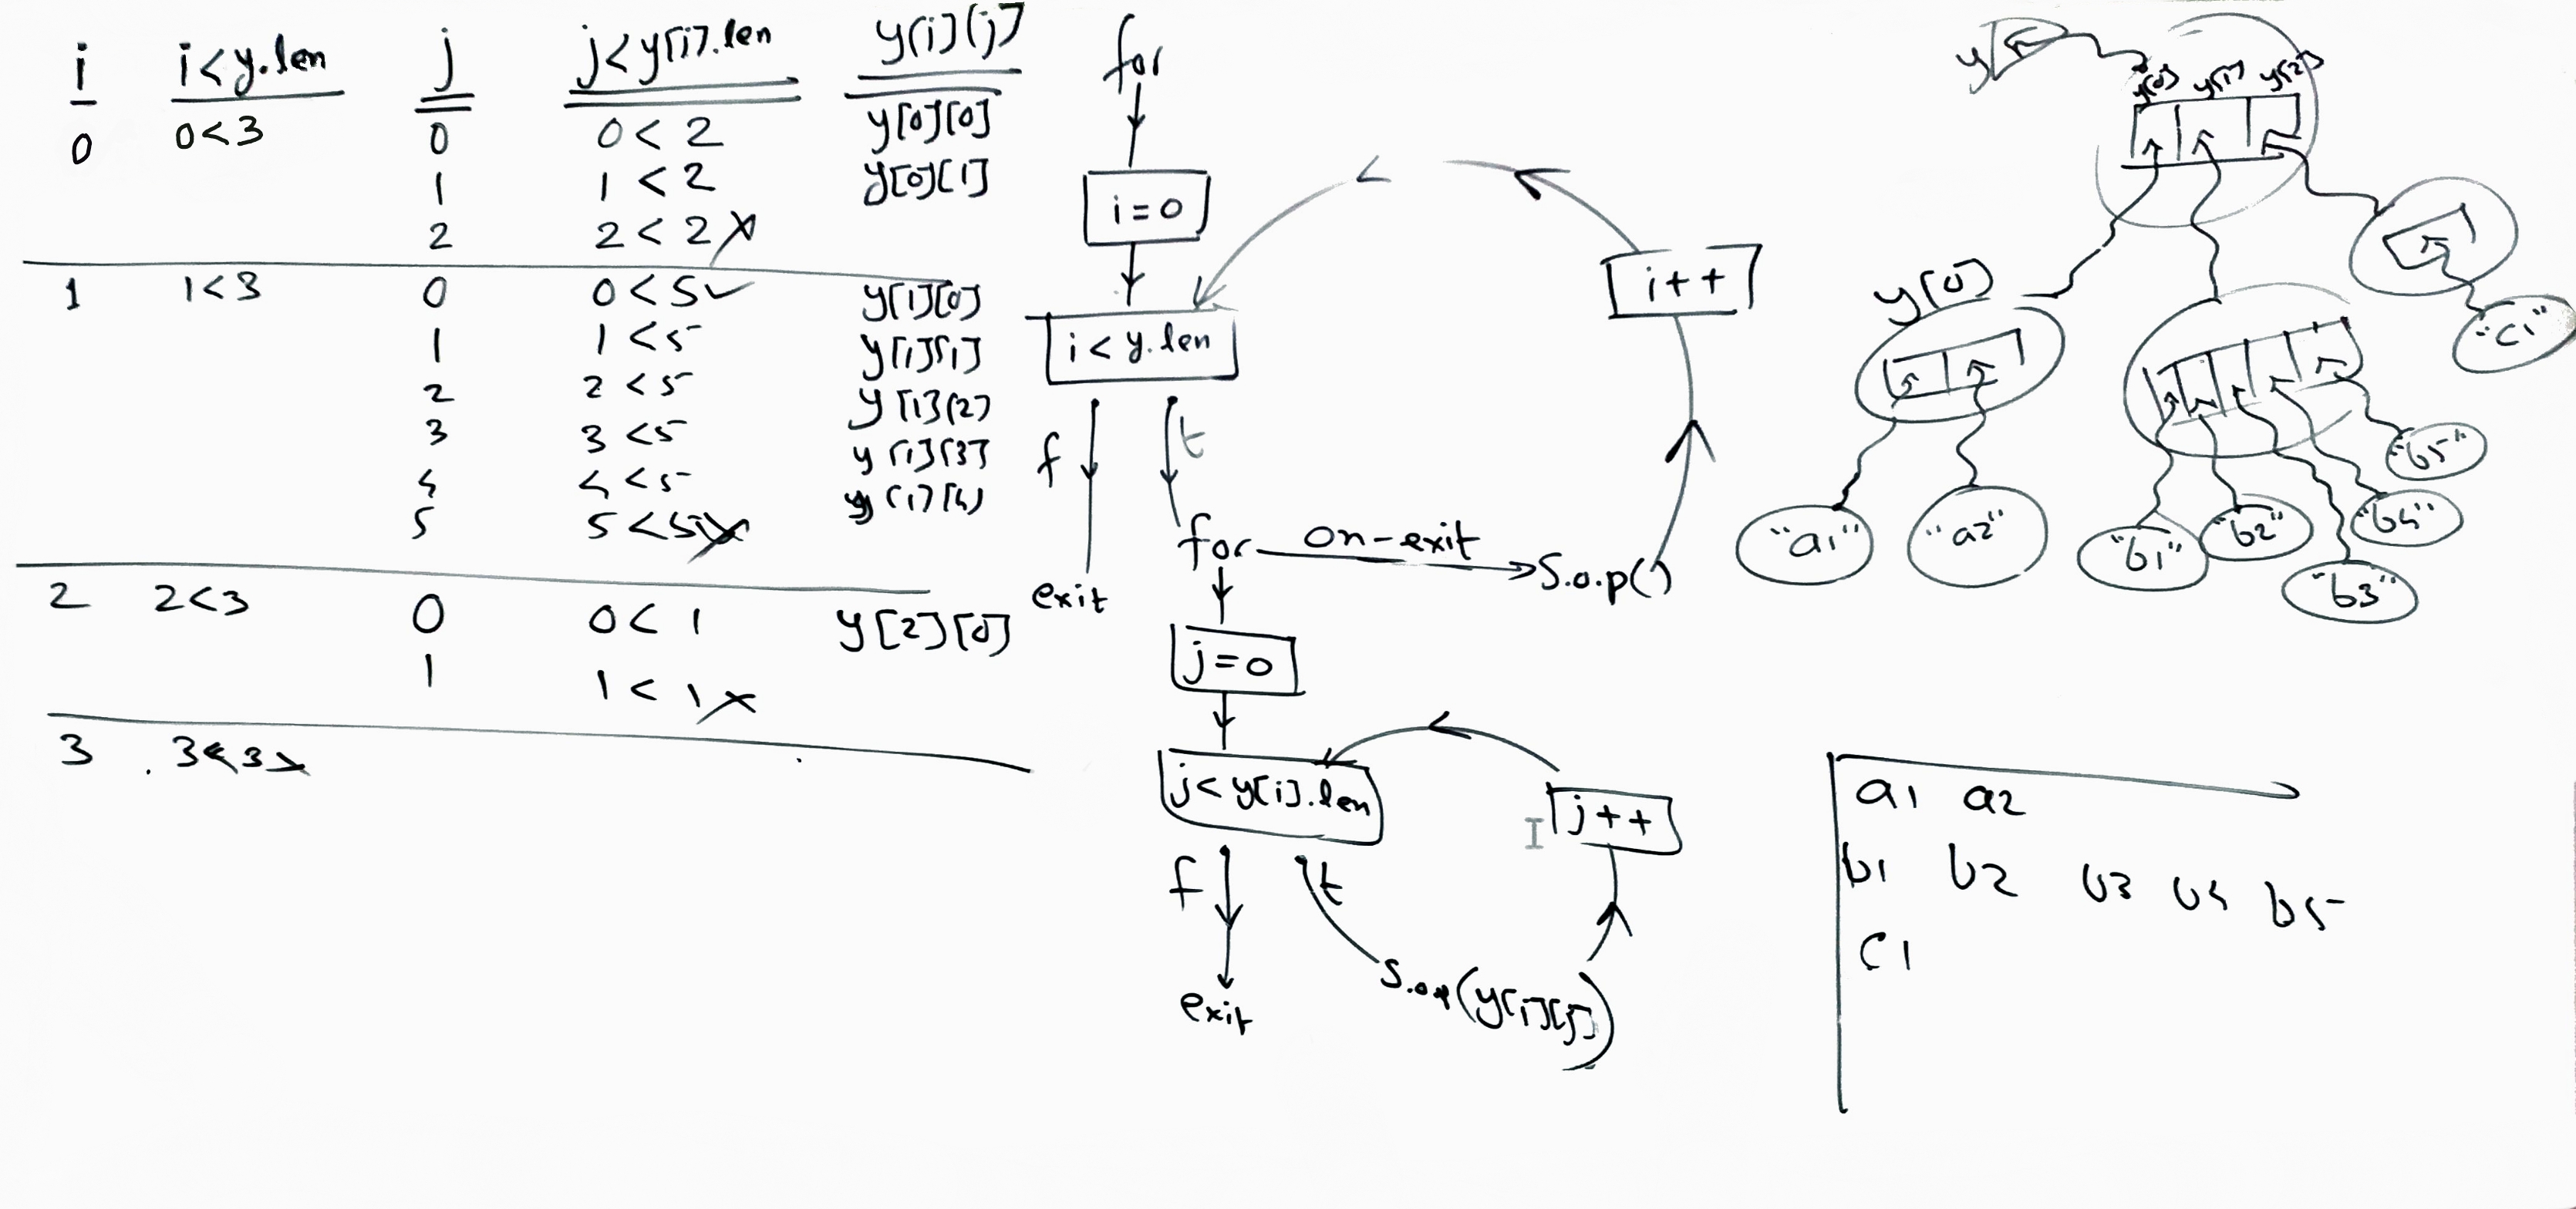 i i<y.len j j<y[i].len y[i][j]
0 0<3 0 0<2 y[0][0]
1 1<2 y[0][1]
2 2<2
1 1<3 0 0<5 y[1][0]
1 1<5 y[1][1]
2 2<5 y[1][2]
3 3<5 y[1][3]
4 4<5 y[1][4]
5 5<5
2 2<3 0 0<1 y[2][0]
1 1<1
3 3<3
for
i=0
i<y.len
i++
f
t
exit
for on-exit S.o.p()
j=0
j<y[i].len
j++
f
t
exit
S.o.p(y[i][j])
y
y[0] y[1] y[2]
y[0]
"c1"
"a1" "a2"
"b1" "b2" "b3" "b4" "b5"
a1 a2
b1 b2 b3 b4 b5
c1